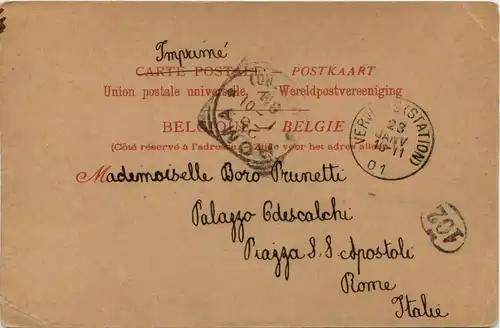 Imprimé
CARTE POSTALE — POSTKAART
Union postale universelle. — Wereldpostvereeniging
BELGIE
(Côté réservé à l'adresse voor het adres
Mademoiselle Boro Prunetti
Palazzo Odescalchi
Piazza S.S. Apostoli
Rome
Italie
VERVIERS (STATION)
23
JANV
10-11
01
ROMA
102